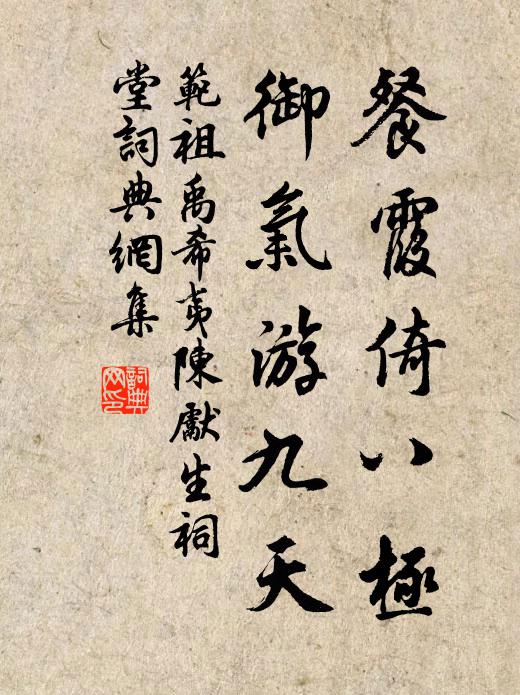 餐霞倚八極
御氣游九天
範祖禹希夷陳獻生祠
堂詞典網集
詞典
网印